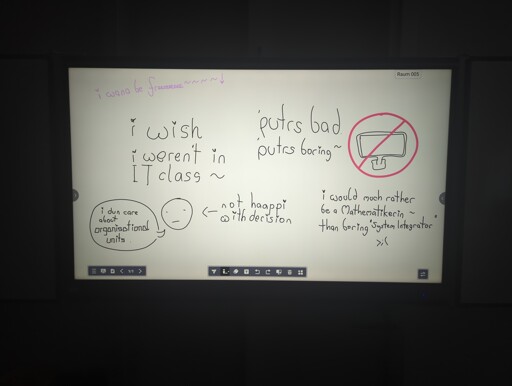 Raum 005
i wanna be
i wish
i weren't in
IT class ~
putrs bad
putrs boring ~
i dun care
about
organisational
units
<- not haappi
with decision
i would much rather
be a Mathematikerin ~
than boring "System Integrator"
>:(